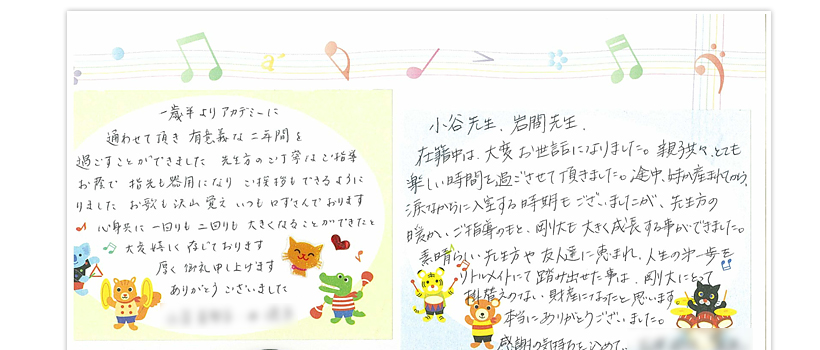 一歳半よりアカデミーに
通わせて頂き 有意義な二年間を
過ごすことができました 先生方のご丁寧なご指導
お蔭で 指先も器用になり ご挨拶もできるように
りました お歌も沢山覚え いつも口ずさんでおります
心身共に 一回りも二回りも 大きくなることができたと
大変嬉しく存じております
厚く御礼申し上げます
ありがとうございました
小谷先生、岩間先生、
在籍中は、大変お世話になりました。親子共々、とても
楽しい時間を過ごさせて頂きました。途中、妹が産まれてから、
涙ながらに入室する時期もございましたが、先生方の
暖かいご指導のもと、剛大も大きく成長する事ができました。
素晴らしい先生方や友人達に恵まれ、人生の第一歩を
リトルメイトにて踏み出せた事は、剛大にとって
掛替えのない財産になったと思います
本当にありがとうございました。
感謝の気持ちを込めて、